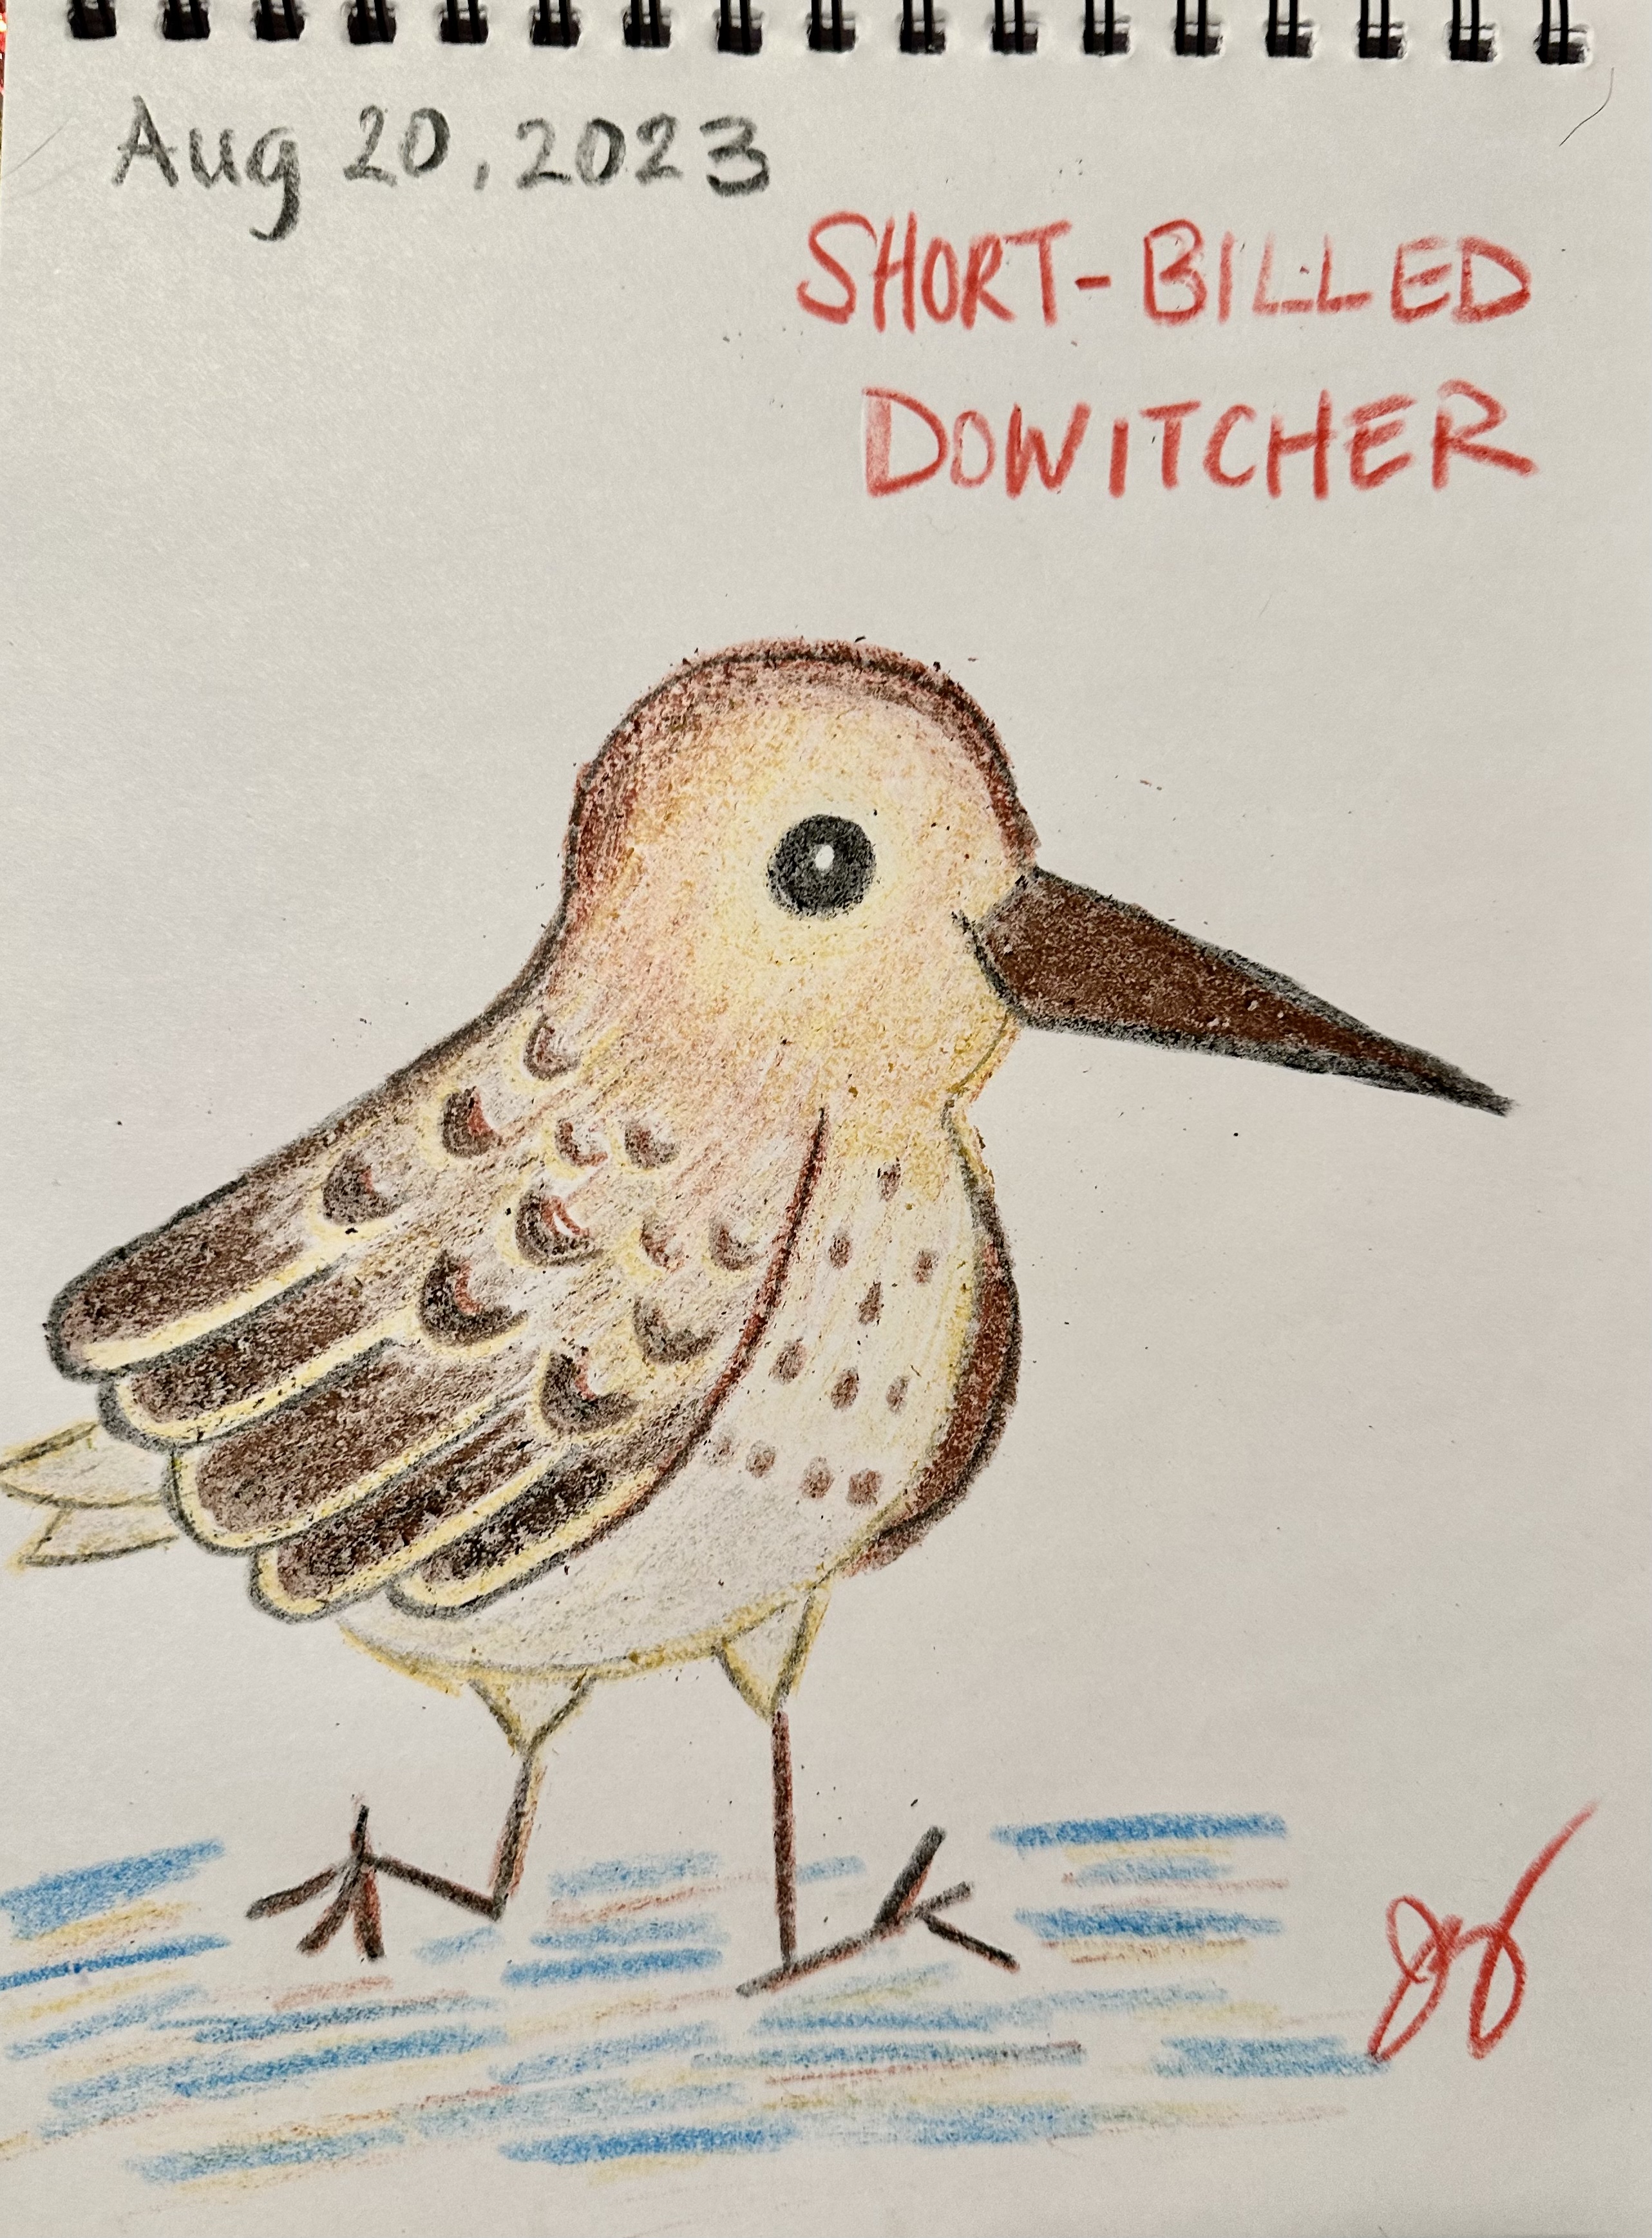 Aug 20, 2023
SHORT-BILLED
DOWITCHER